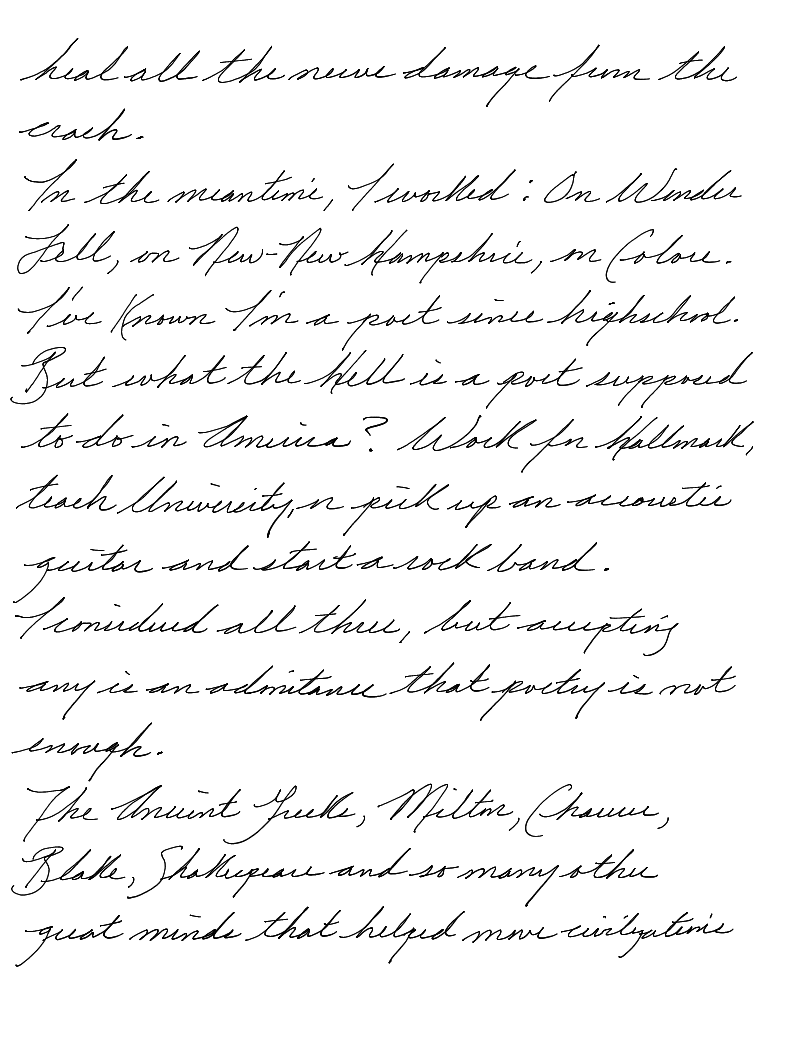 heal all the nerve damage from the
crash.
In the meantime, I worked: On Wender
Fell, on New-New Hampshire, on Colore.
I've Known I'm a poet since highschool.
But what the Hell is a poet supposed
to do in America? Work for Hallmark,
teach University, or pick up an accoustic
guitar and start a rock band.
I considered all three, but accepting
any is an admitance that poetry is not
enough.
The Ancient Greeks, Milton, Chaucer,
Blake, Shakespeare and so many other
great minds that helped move civilizations